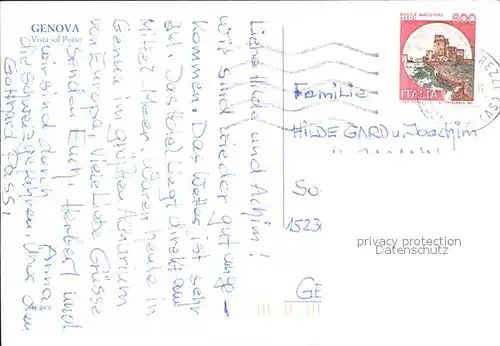 GENOVA
Vista sul Porto
Liebe Hilde und Achim!
Wir sind wieder gut ange-
kommen. Das Wetter ist sehr
gut. Das Hotel liegt direkt am
Mittel Meer. Waren heute in
Genua im größten Aquarium
von Europa. Viele Liebe Grüsse
senden Euch, Herbert und
Anna
wir sind durch
die Schweiz gefahren. Über den
Gotthard Pass.
ROCCA MAGGIORE
ASSISI
800
ITALIA
Familie
HILDEGARD u. Joachim
So
1523
GE
privacy protection
Datenschutz